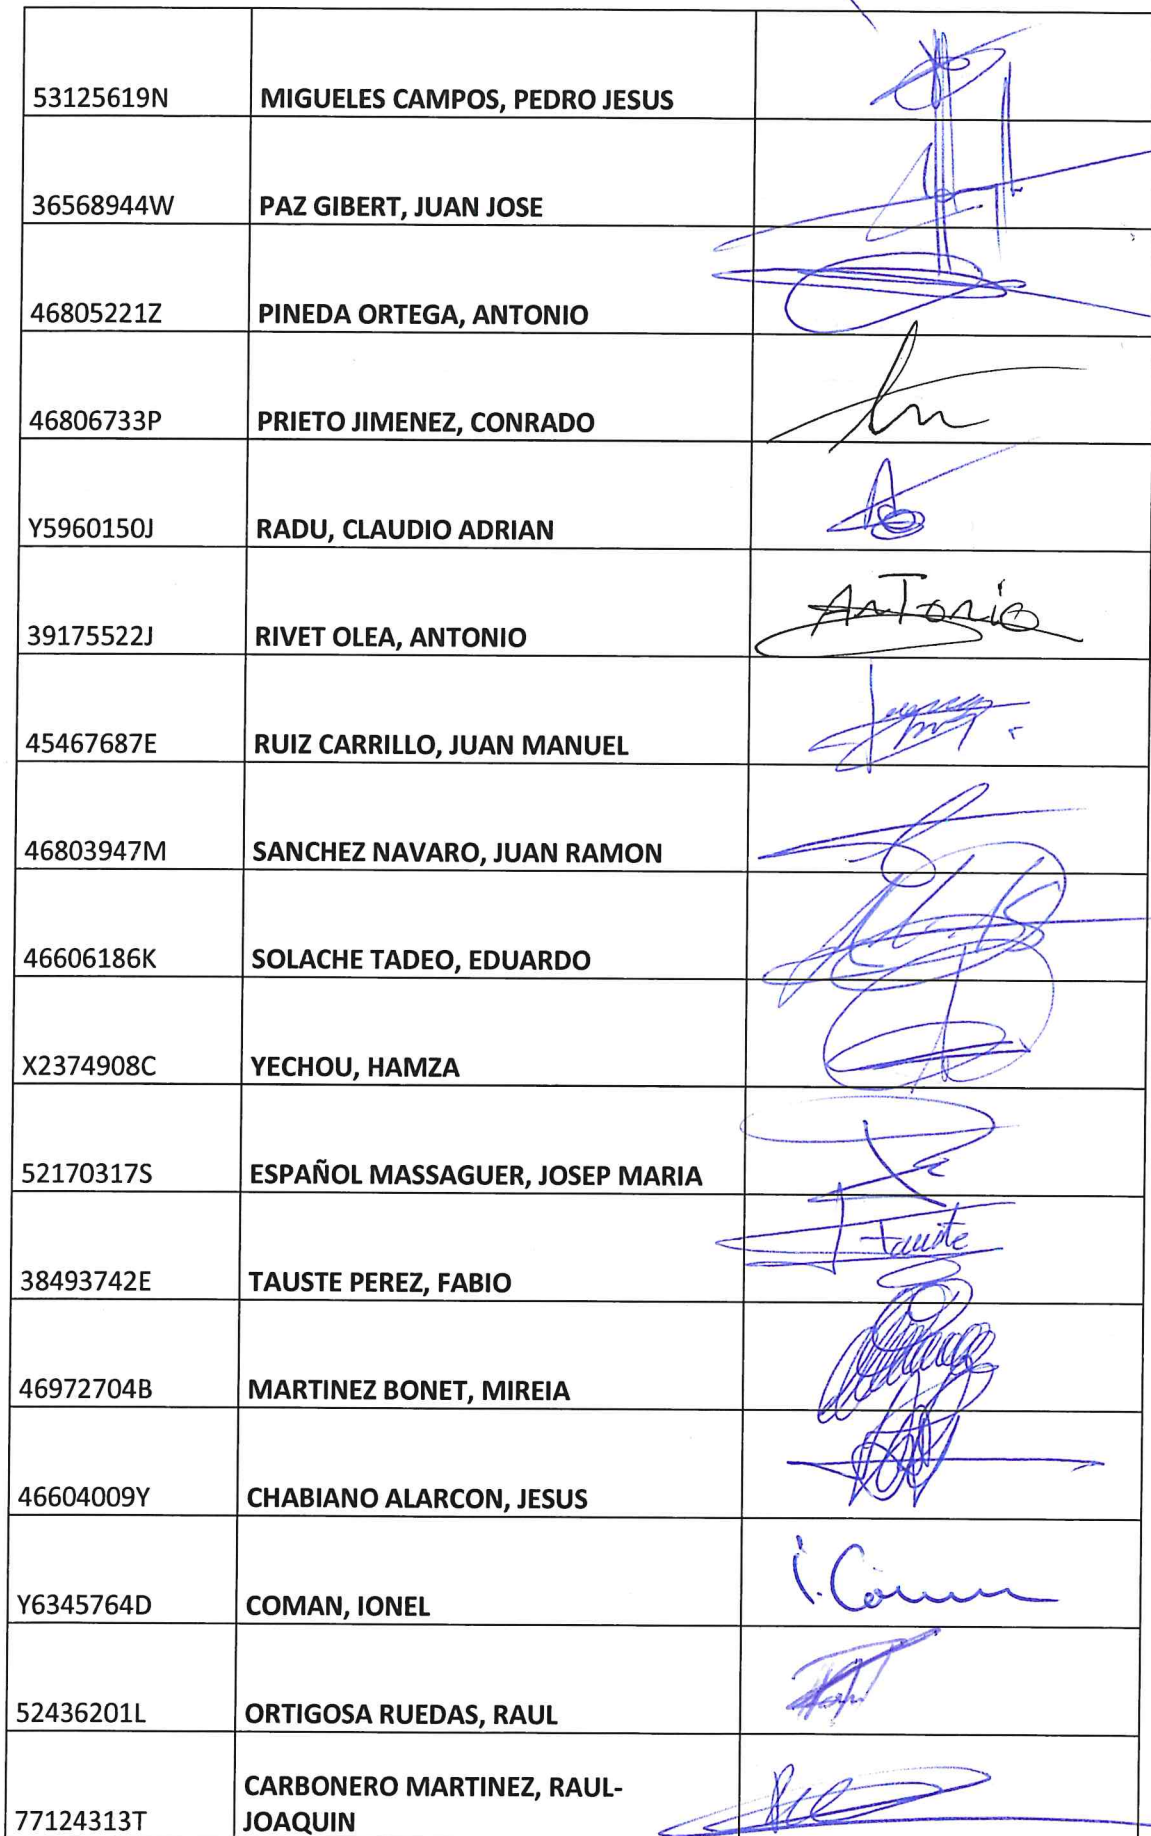 53125619N MIGUELES CAMPOS, PEDRO JESUS
36568944W PAZ GIBERT, JUAN JOSE
46805221Z PINEDA ORTEGA, ANTONIO
46806733P PRIETO JIMENEZ, CONRADO
Y5960150J RADU, CLAUDIO ADRIAN
39175522J RIVET OLEA, ANTONIO Antonio
45467687E RUIZ CARRILLO, JUAN MANUEL
46803947M SANCHEZ NAVARO, JUAN RAMON
46606186K SOLACHE TADEO, EDUARDO
X2374908C YECHOU, HAMZA
52170317S ESPAÑOL MASSAGUER, JOSEP MARIA
38493742E TAUSTE PEREZ, FABIO Tauste
46972704B MARTINEZ BONET, MIREIA
46604009Y CHABIANO ALARCON, JESUS
Y6345764D COMAN, IONEL I. Coman
52436201L ORTIGOSA RUEDAS, RAUL
CARBONERO MARTINEZ, RAUL-
77124313T JOAQUIN